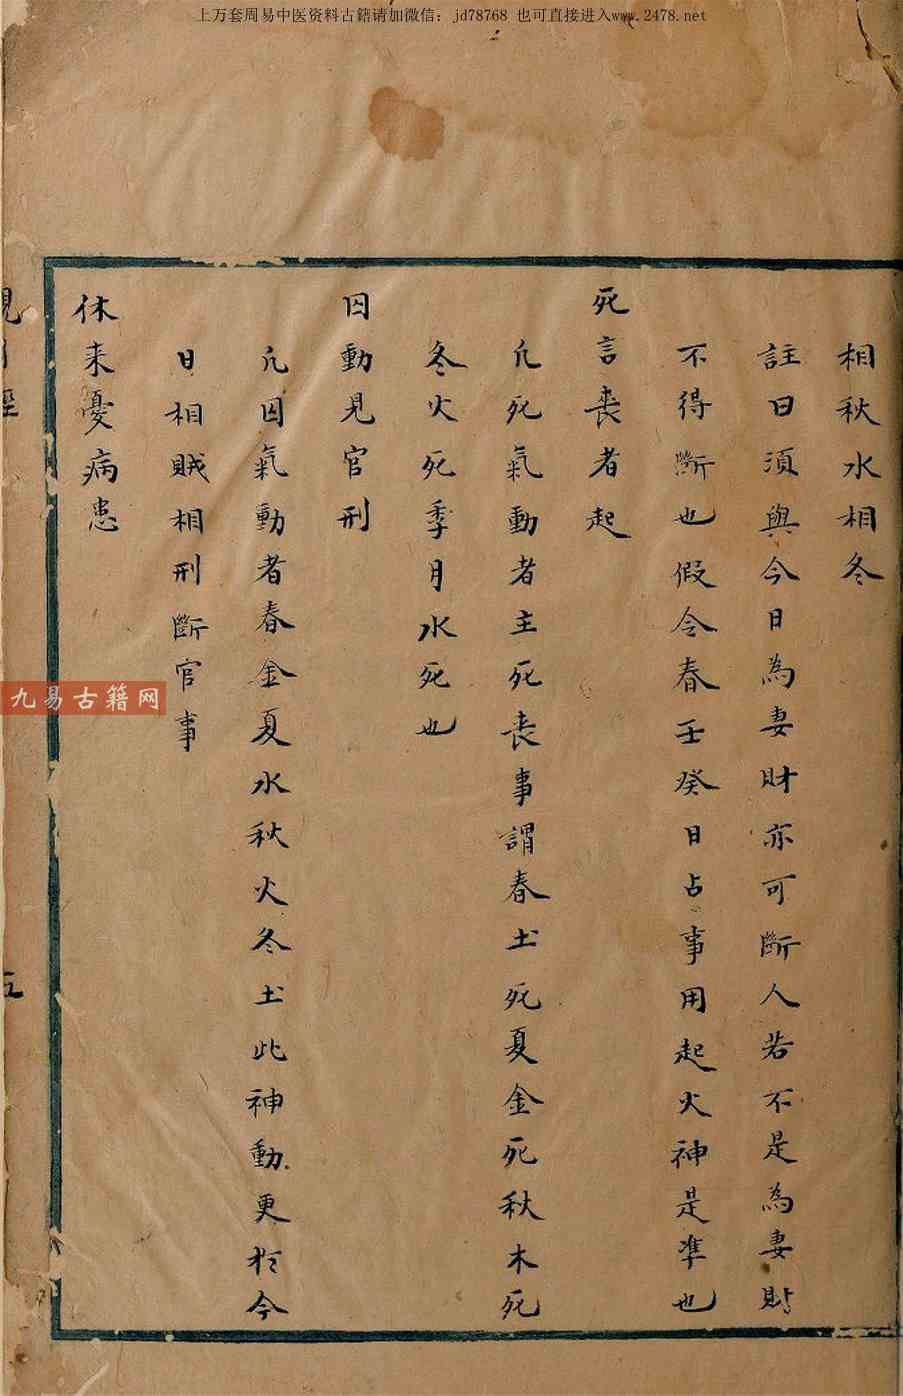 上万套周易中医资料古籍请加微信：jd78768 也可直接进入www.2478.net
相秋水相冬
註曰須與今日為妻財亦可斷人若不是為妻財
不得斷也假令春壬癸日占事用起火神是準也
死言喪者起
凡死氣動者主死喪事謂春土死夏金死秋木死
冬火死季月水死也
囚動見官刑
凡囚氣動者春金夏水秋火冬土此神動更於今
日相賊相刑斷官事
休来憂病患
五
九易古籍网